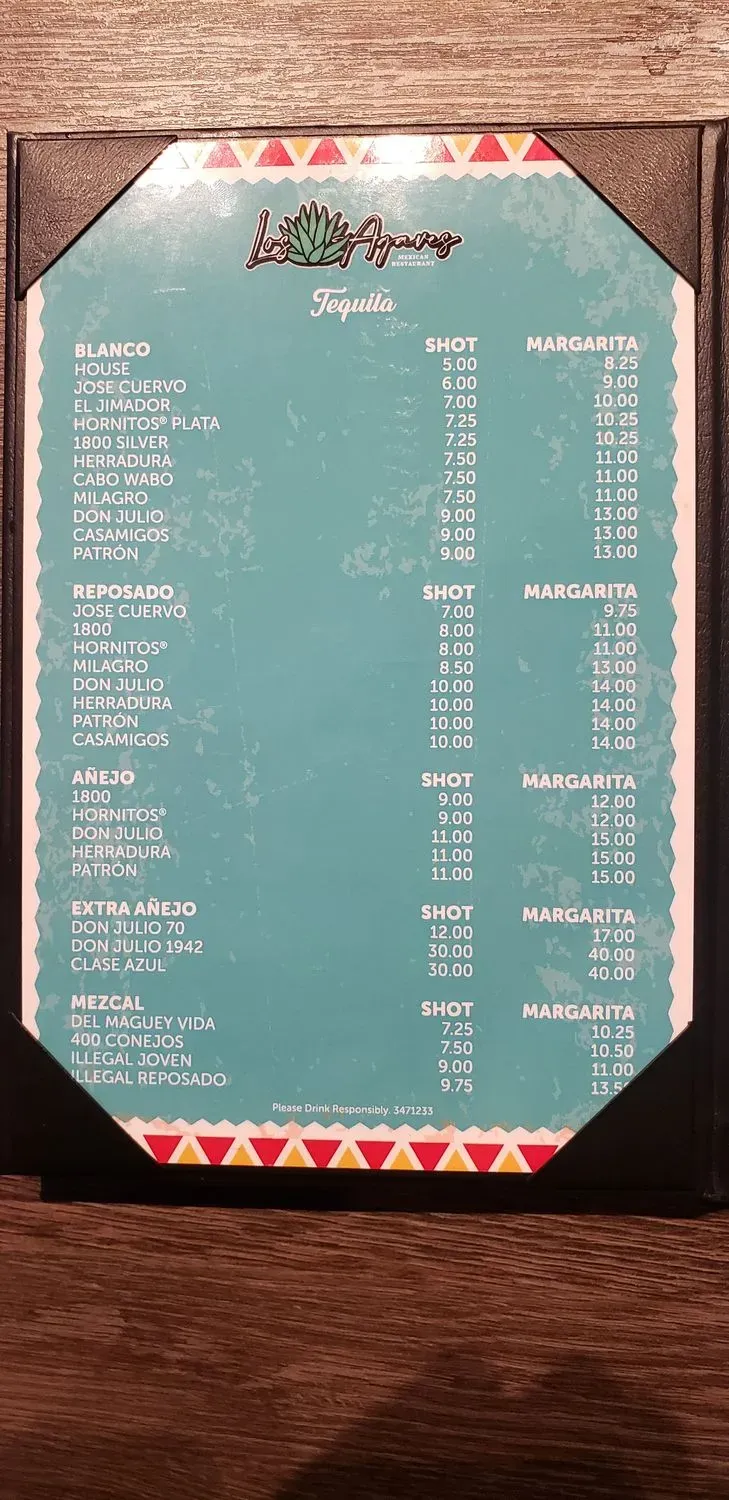 Los Agaves
MEXICAN
RESTAURANT
Tequila
BLANCO SHOT MARGARITA
HOUSE 5.00 8.25
JOSE CUERVO 6.00 9.00
EL JIMADOR 7.00 10.00
HORNITOS® PLATA 7.25 10.25
1800 SILVER 7.25 10.25
HERRADURA 7.50 11.00
CABO WABO 7.50 11.00
MILAGRO 7.50 11.00
DON JULIO 9.00 13.00
CASAMIGOS 9.00 13.00
PATRÓN 9.00 13.00
REPOSADO SHOT MARGARITA
JOSE CUERVO 7.00 9.75
1800 8.00 11.00
HORNITOS® 8.00 11.00
MILAGRO 8.50 13.00
DON JULIO 10.00 14.00
HERRADURA 10.00 14.00
PATRÓN 10.00 14.00
CASAMIGOS 10.00 14.00
AÑEJO SHOT MARGARITA
1800 9.00 12.00
HORNITOS® 9.00 12.00
DON JULIO 11.00 15.00
HERRADURA 11.00 15.00
PATRÓN 11.00 15.00
EXTRA AÑEJO SHOT MARGARITA
DON JULIO 70 12.00 17.00
DON JULIO 1942 30.00 40.00
CLASE AZUL 30.00 40.00
MEZCAL SHOT MARGARITA
DEL MAGUEY VIDA 7.25 10.25
400 CONEJOS 7.50 10.50
ILLEGAL JOVEN 9.00 11.00
ILLEGAL REPOSADO 9.75 13.50
Please Drink Responsibly. 3471233